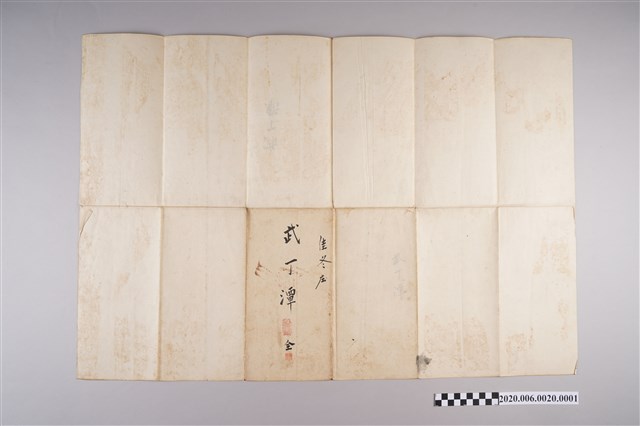 佳冬庄
武丁潭
全
2020.006.0020.0001